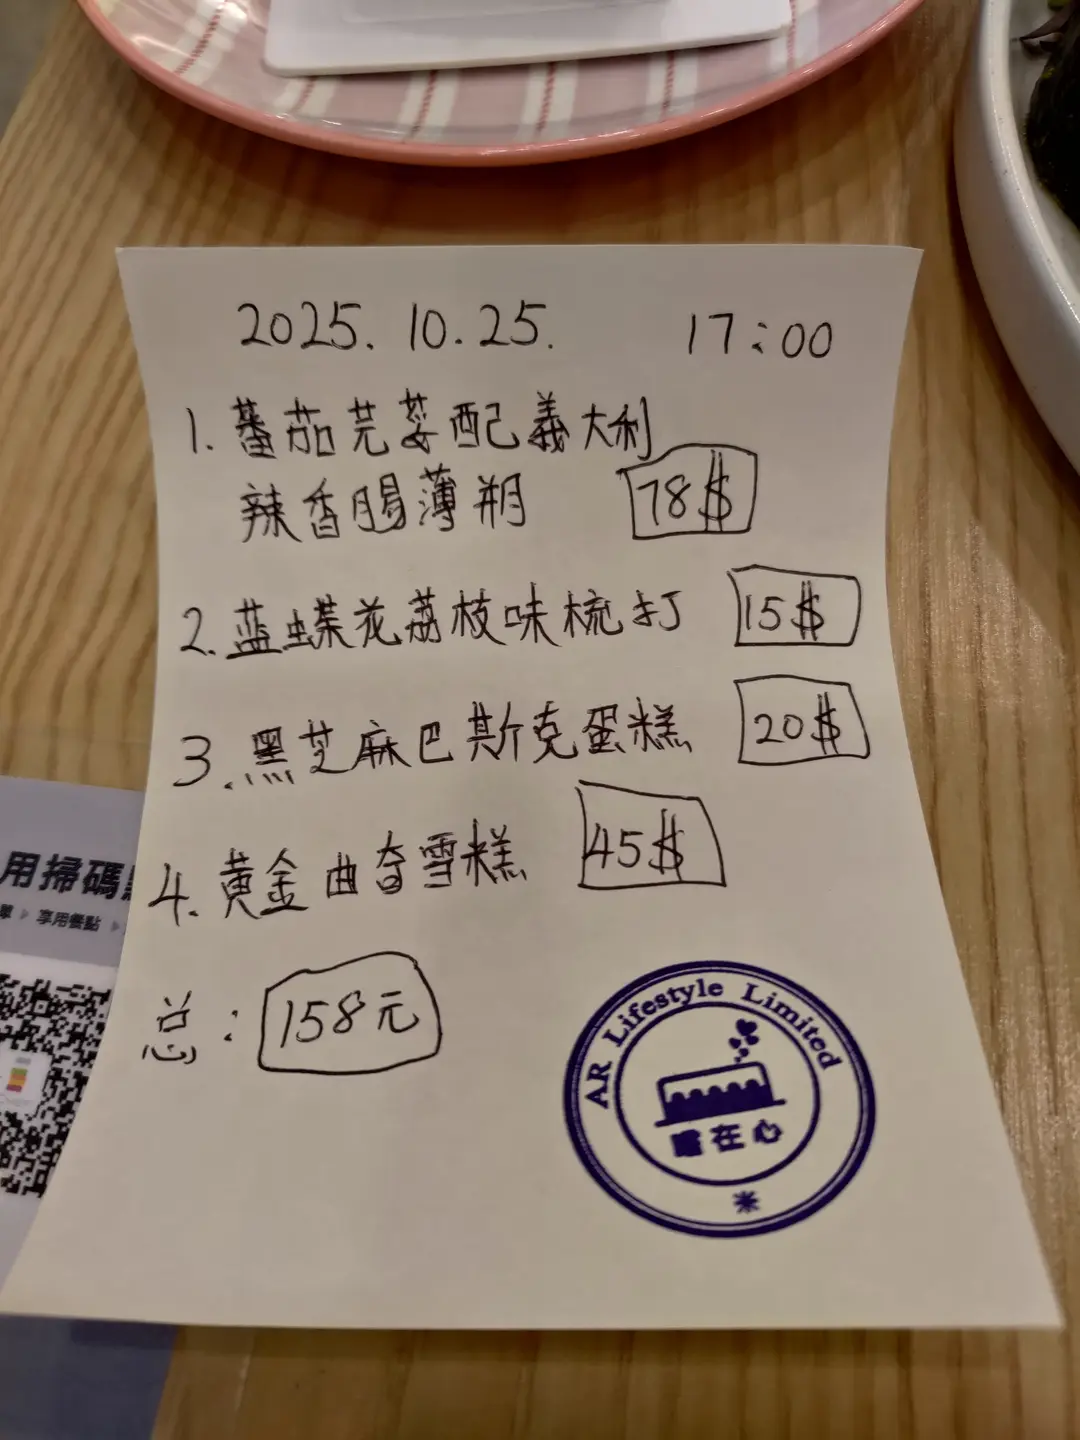 2025.10.25. 17:00
1. 蕃茄芫荽配義大利
辣香腸薄朔 78$
2. 蓝蝶花荔枝味梳打 15$
3. 黑芝麻巴斯克蛋糕 20$
4. 黄金曲奇雪糕 45$
总: 158元
AR Lifestyle Limited
在心
用掃碼
單 ▶ 享用餐點 ▶